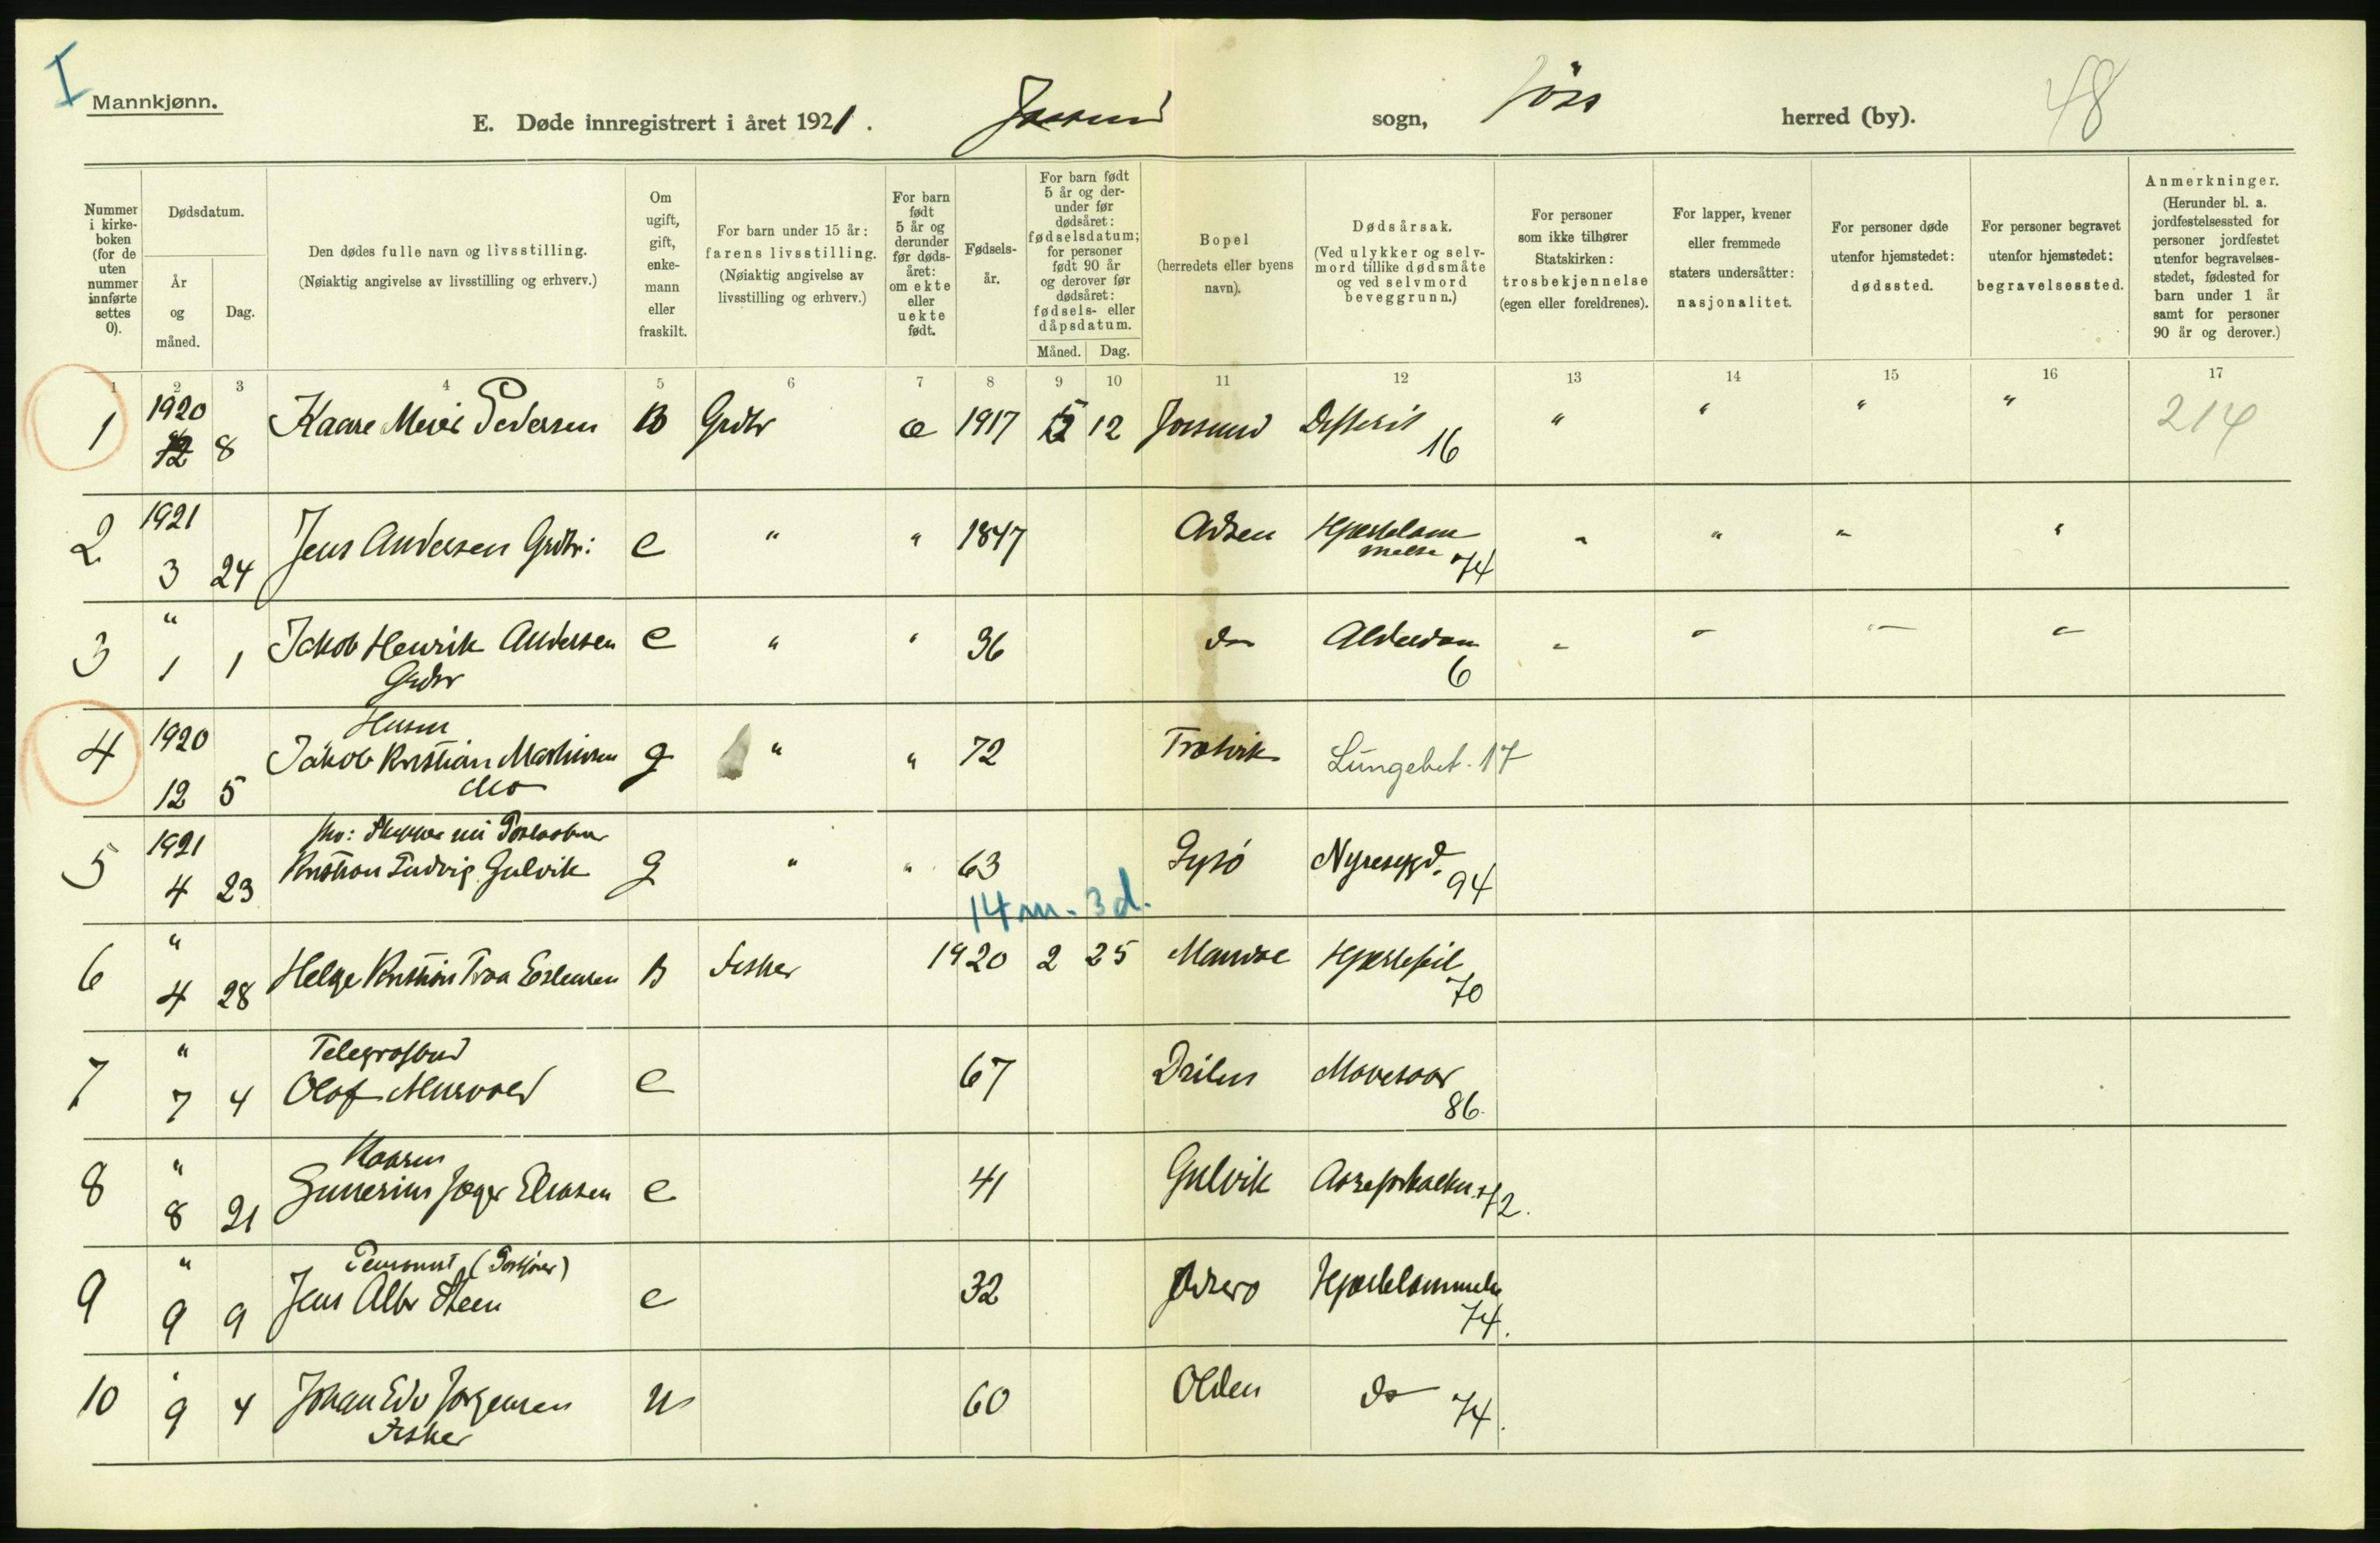 I
Mannkjønn.
E. Døde innregistrert i året 1921. Jossund sogn, herred (by). 48
Nummer i kirkeboken (for de uten nummer innførte settes 0).
Dødsdatum.
År og måned.
Dag.
Den dødes fulle navn og livsstilling.
(Nøiaktig angivelse av livsstilling og erhverv.)
Om ugift, gift, enkemann eller fraskilt.
For barn under 15 år: farens livsstilling.
(Nøiaktig angivelse av livsstilling og erhverv.)
For barn født 5 år og derunder før dødsåret: om ekte eller uekte født.
Fødselsår.
For barn født 5 år og derunder før dødsåret: fødselsdatum; for personer født 90 år og derover før dødsåret: fødsels- eller dåpsdatum.
Måned. Dag.
Bopel (herredets eller byens navn).
Dødsårsak.
(Ved ulykker og selvmord tillike dødsmåte og ved selvmord beveggrunn.)
For personer som ikke tilhører Statskirken: trosbekjennelse (egen eller foreldrenes).
For lapper, kvener eller fremmede staters undersåtter: nasjonalitet.
For personer døde utenfor hjemstedet: dødssted.
For personer begravet utenfor hjemstedet: begravelsessted.
Anmerkninger.
(Herunder bl. a. jordfestelsessted for personer jordfestet utenfor begravelsesstedet, fødested for barn under 1 år samt for personer 90 år og derover.)
1 2 3 4 5 6 7 8 9 10 11 12 13 14 15 16 17
1 1920 12 8 Kaare Meier Pedersen B Grdbr æ 1917 12 Jossund Difterit 16 " " " " 214
2 1921 3 24 Jens Andersen Grdbr: e " " 1847 Adsen Hjertelammelse 74 " " " "
3 " 1 1 Jakob Henrik Andersen e " " 36 do Alderdom 6 " " " "
Grdbr
4 1920 12 5 Husm
Jakob Kristian Martinsen g " " 72 Lungebet. 17
Mo
5 1921 4 23
Kristian Ludvig Gulvik g " " 63 Lysø Nyresygd. 94
14 m. 3 d.
6 " 4 28 Helge Kristian B Fisker 1920 2 25 Hjertefeil 70
7 " 7 4 Telegrafbud
Olaf Murvold e 67 Mavesaar 86.
8 " 8 21 Kaarm
Jæger Eliasen e 41 Gulvik Aareforkalkn. 72.
9 " 9 9 Pensionist
Jens Albr Steen e 32 Hjertelammelse 74.
10 " 9 4 Johan Edv Jørgensen u 60 Olden do 74.
Fisker